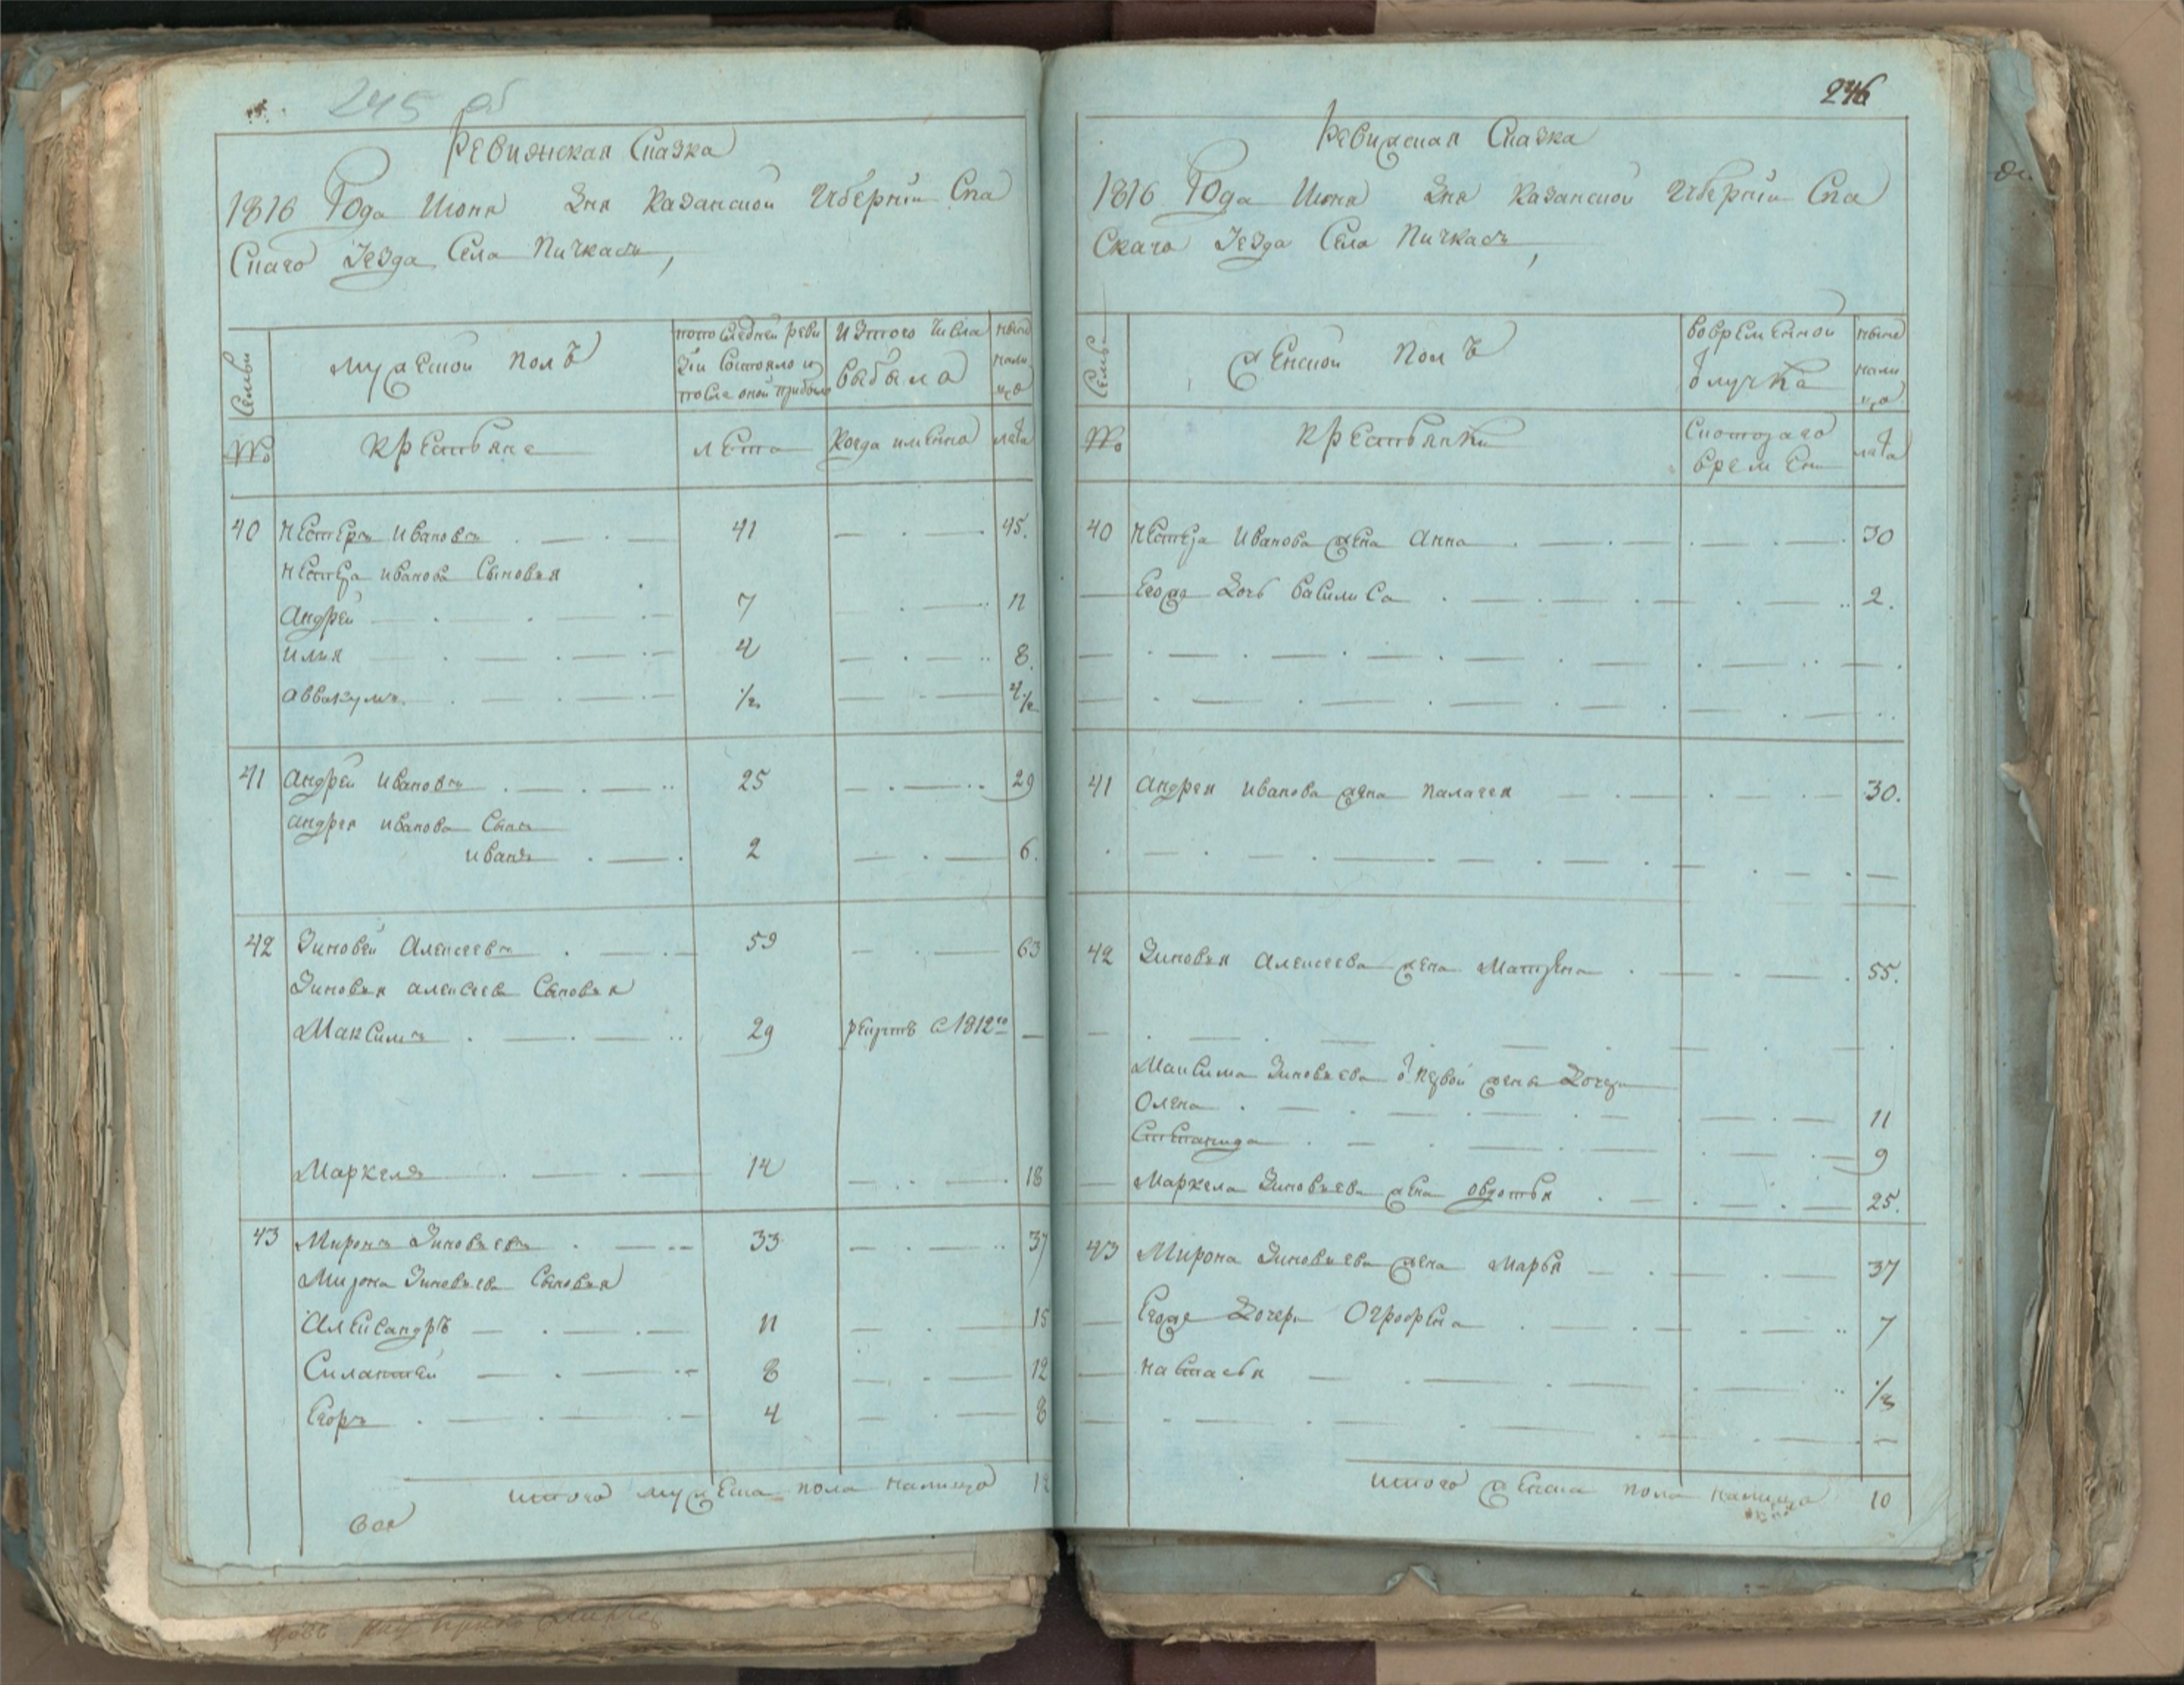 245 об
Ревижская Сказка
1816 Года Июня Дня Казанской Губернии Спа
Скаго Уезда Села Пичкасъ,
Семьи
мужеской полъ
попоследней реви
зіи состояло и
после оной прибыло
Изтого числа
выбыло
ныне
нали
цо
№
крестьяне
лета
Когда имянно
лета
40 Нестеръ Ивановъ 41 45.
Нестера Иванова Сыновья
Андрей 7 11
Илья 4 8.
Аввакумъ 1/2 4 1/2
41 Андрей Ивановъ 25 29
Андрея Иванова Сынъ
Иванъ 2 6.
42 Зиновей Алексеевъ 59 63
Зиновья Алексеева Сыновья
Максимъ 29 рекрутъ с 1812го
Маркелъ 14 18
43 Миронъ Зиновьевъ 33 37
Мирона Зиновьева Сыновья
Александръ 11 15
Силантей 8 12
Егоръ 4 8
итого мужеска пола налицо 12
246
Ревижская Сказка
1816 Года Июня Дня Казанской Губернии Спа
Скаго Уезда Села Пичкасъ,
Семьи
Женской полъ
вовременной
отлучке
ныне
нали
цо
№
крестьянки
Скотораго
времени
лета
40 Нестера Иванова жена Анна 30
Егоже дочь Василиса 2.
41 Андрея Иванова жена Палагея 30.
42 Зиновья Алексеева жена Матрена 55.
Максима Зиновьева от первой жены дочери
Олена 11
Степанида 9
Маркела Зиновьева жена Овдотья 25.
43 Мирона Зиновьева жена Марья 37
Егоже дочери Огрофена 7
Настасья
итого женска пола налицо 10